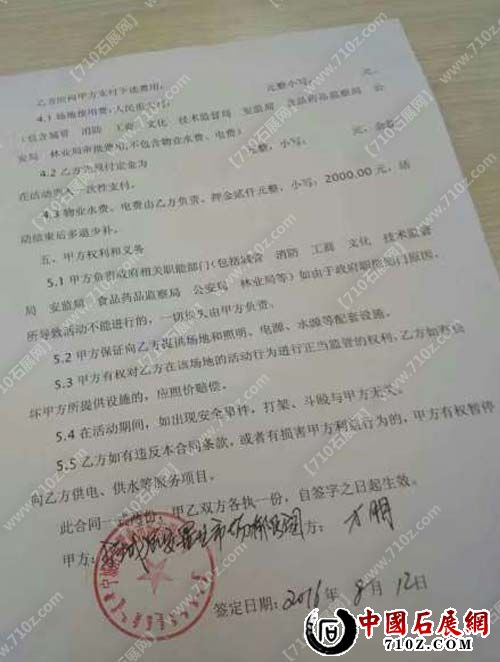 乙方应向甲方支付下述费用，
4.1 场地使用费：人民币大写： 元整小写： 元，
（包含城管 消防 工商 文化 技术监督局 安监局 食品药品监察局 公
安局 林业局审批费用，不包含物业水费、电费）
4.2 乙方先预付定金为 元整，小写： 元，余款
在活动 一次性支付。
4.3 物业水费、电费由乙方负责，押金贰仟元整，小写：2000.00 元，活
动结束后多退少补。
五、甲方权利和义务
5.1 甲方负责政府相关职能部门（包括城管 消防 工商 文化 技术监督
局 安监局 食品药品监察局 公安局 林业局等）如由于政府职能部门原因，
所导致活动不能进行的，一切损失由甲方负责。
5.2 甲方保证向乙方提供场地和照明、电源、水源等配套设施。
5.3 甲方有权对乙方在该场地的活动行为进行正当监管的权利，乙方如有损
坏甲方所提供设施的，应照价赔偿。
5.4 在活动期间，如出现安全事件，打架、斗殴与甲方无关。
5.5 乙方如有违反本合同条款，或者有损害甲方利益行为的，甲方有权暂停
向乙方供电、供水等服务项目。
此合同一式两份，甲乙双方各执一份，自签字之日起生效。
甲方： 方： 方明
签定日期：2016年8月12日
中國石展網
710Z.COM
【710石展网】
www.710z.com